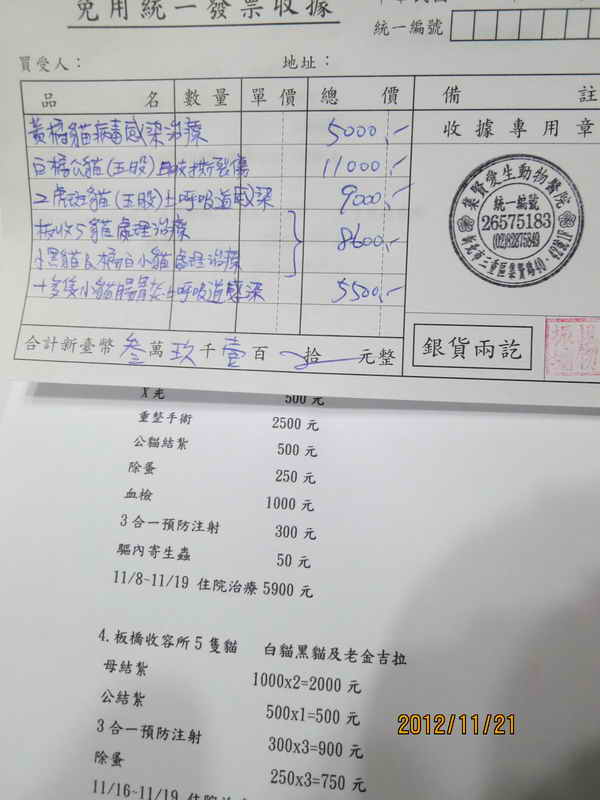 免用統一發票收據
統一編號
買受人：
地址：
品名 數量 單價 總價 備註
黃橘貓病毒感染治療 5000,-
收據專用章
白橘公貓(五股)皿肢撕裂傷 11000,-
2虎斑貓(五股)上呼吸道感染 9000,-
板收5貓處理治療 8600,-
小黑貓&橘白小貓處理治療
十多隻小貓腸胃炎上呼吸道感染 5500,-
集賢愛生動物醫院
統一編號
26575183
(02)82875849
合計新臺幣 叁萬玖千壹百 拾 元整
銀貨兩訖
X光 500元
重整手術 2500元
公貓結紮 500元
除蚤 250元
血檢 1000元
3合一預防注射 300元
驅內寄生蟲 50元
11/8~11/19 住院治療 5900元
4.板橋收容所5隻貓 白貓黑貓及老金吉拉
母結紮 1000x2=2000元
公結紮 500x1=500元
3合一預防注射 300x3=900元
除蚤 250x3=750元
11/16~11/19 住院
2012/11/21